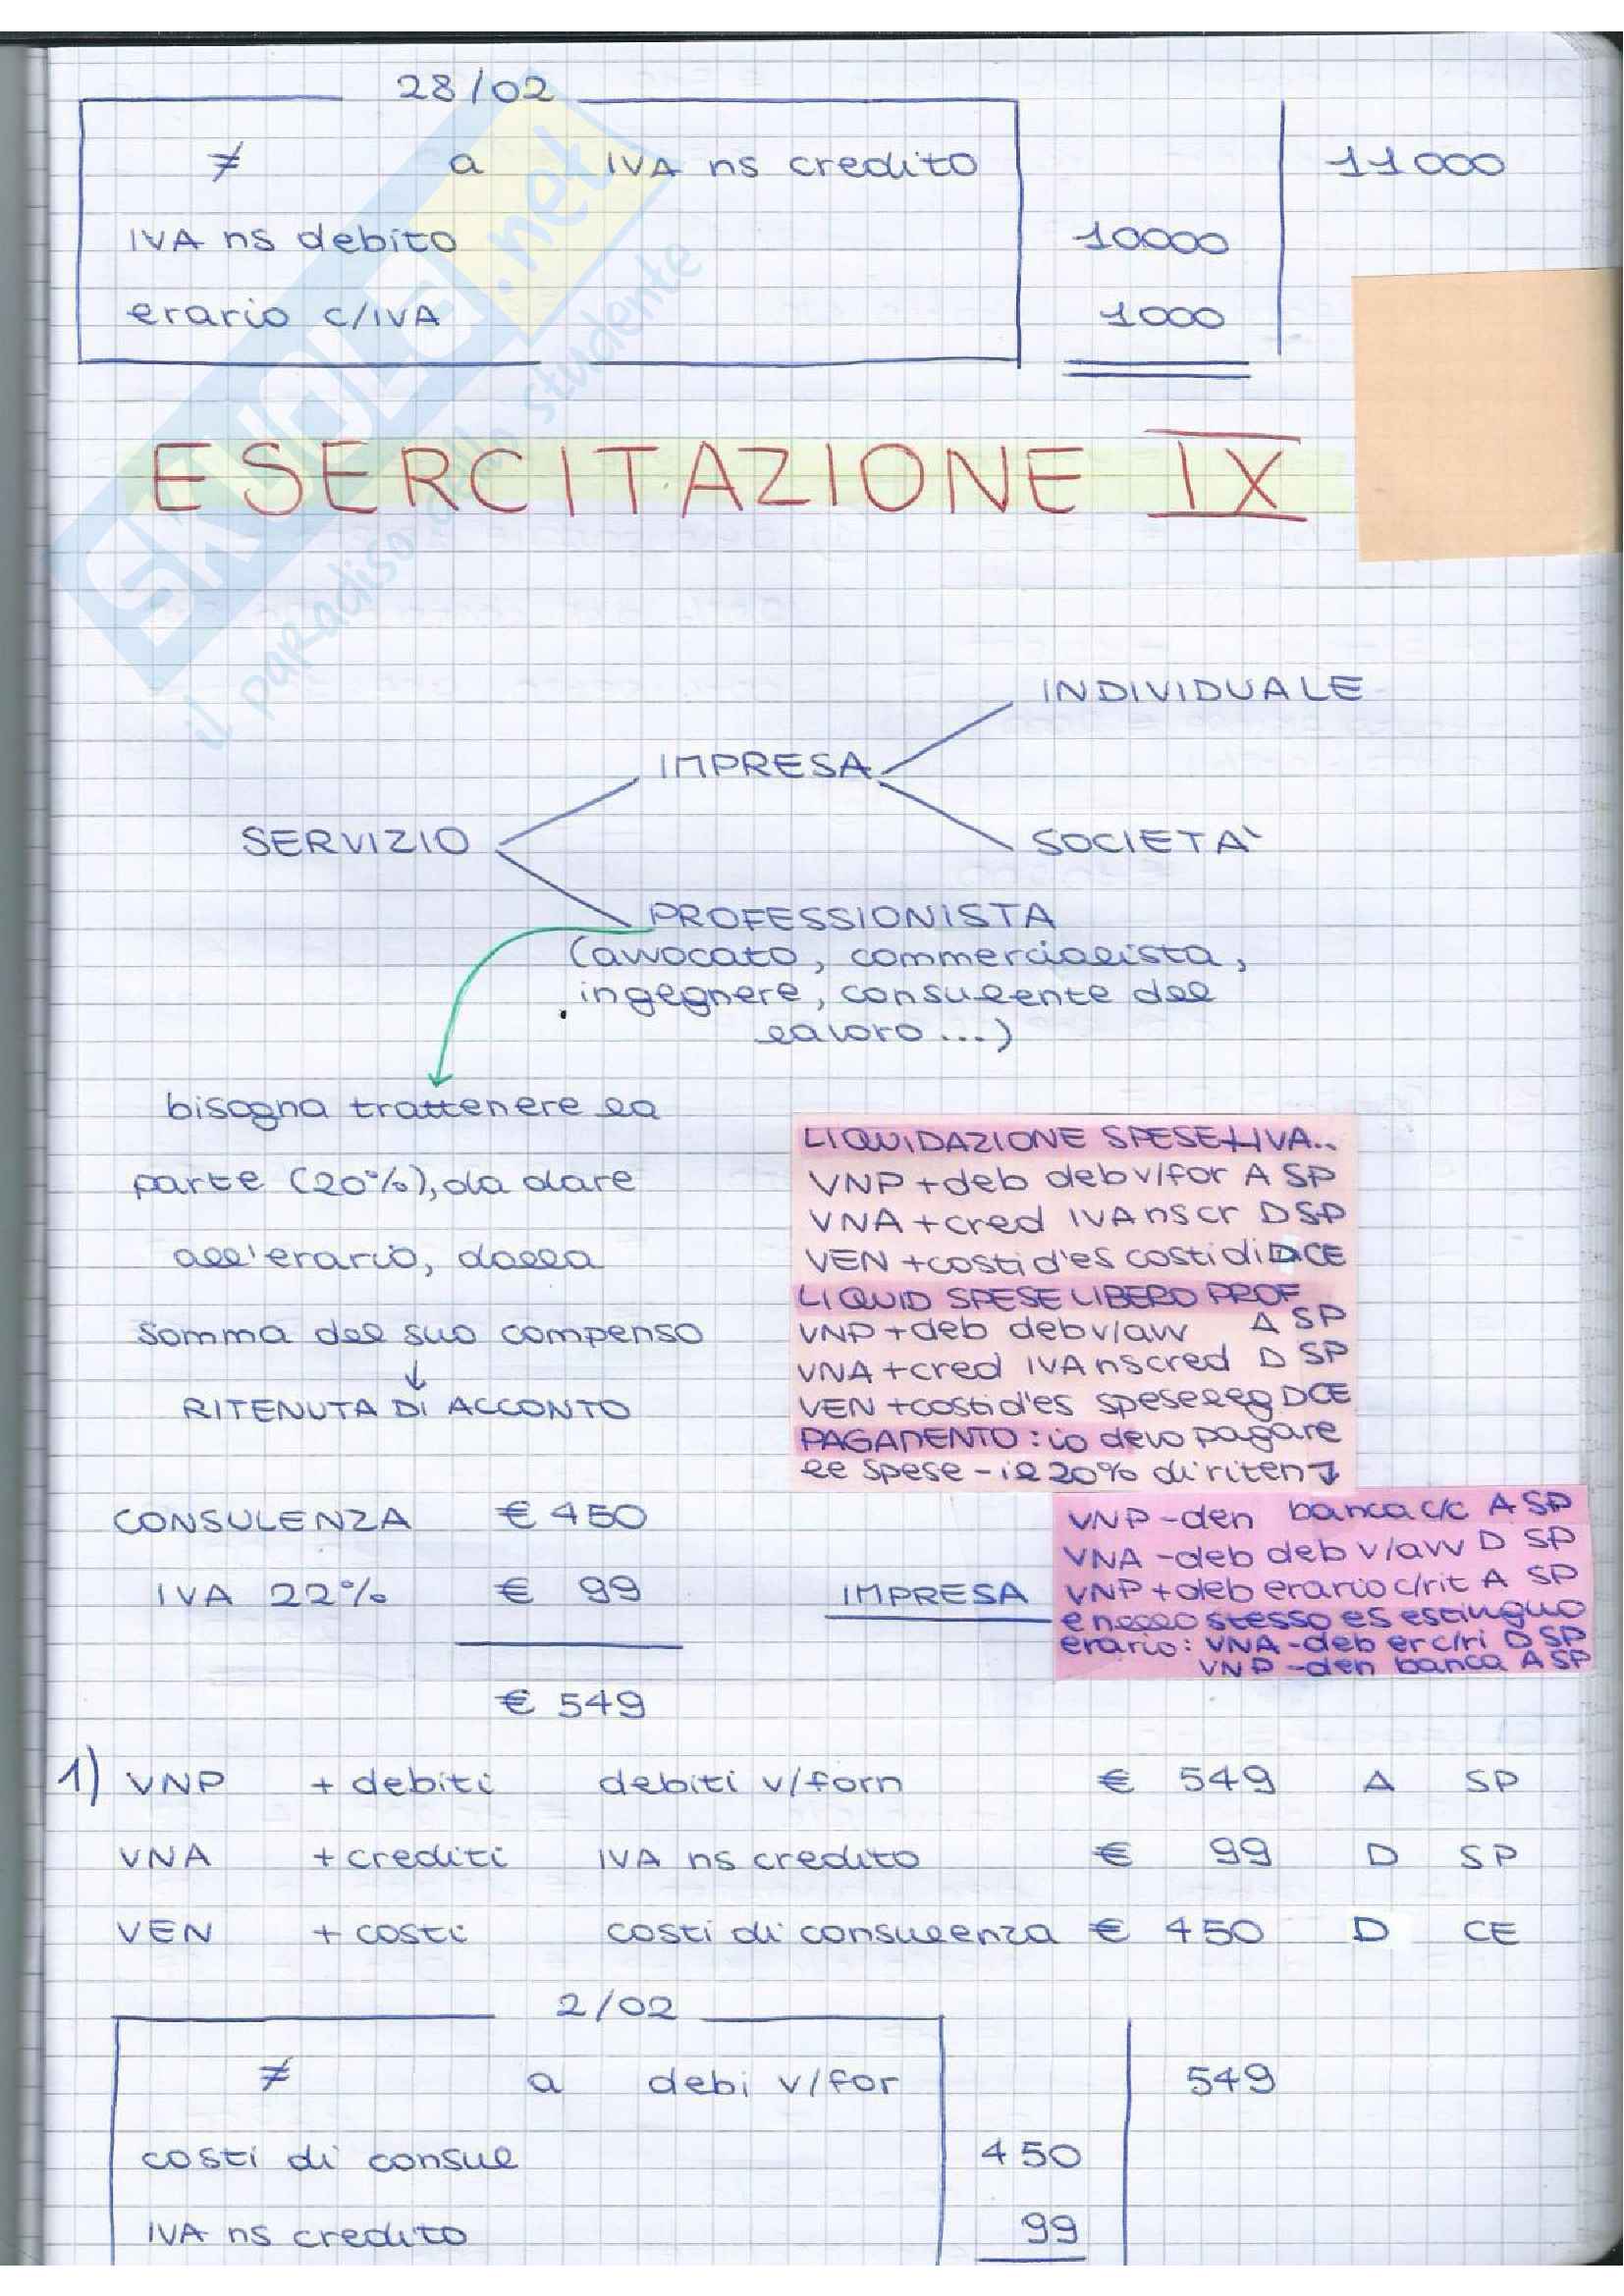 28/02
≠ a IVA ns credito 11000
IVA ns debito 10000
erario c/IVA 1000
SKUOLA.net
il paradiso dello studente
ESERCITAZIONE IX
INDIVIDUALE
IMPRESA
SERVIZIO
SOCIETA'
PROFESSIONISTA
(avvocato, commercialista,
ingegnere, consulente del
lavoro...)
bisogna trattenere la
parte (20%), da dare
all'erario, dalla
somma del suo compenso
↓
RITENUTA DI ACCONTO
LIQUIDAZIONE SPESE+IVA..
VNP +deb deb v/for A SP
VNA +cred IVA ns cr D SP
VEN +costi d'es costi di D CE
LIQUID SPESE LIBERO PROF
VNP +deb deb v/avv A SP
VNA +cred IVA ns cred D SP
VEN +costi d'es spese leg D CE
PAGAMENTO: io devo pagare
le spese - il 20% di riten ↓
VNP -den banca c/c A SP
VNA -deb deb v/avv D SP
VNP +deb erario c/rit A SP
e nello stesso es estinguo
erario: VNA -deb er c/ri D SP
VNP -den banca A SP
CONSULENZA € 450
IVA 22% € 99 IMPRESA
€ 549
1) VNP + debiti debiti v/forn € 549 A SP
VNA + crediti IVA ns credito € 99 D SP
VEN + costi costi di consulenza € 450 D CE
2/02
≠ a debi v/for 549
costi di consul 450
IVA ns credito 99